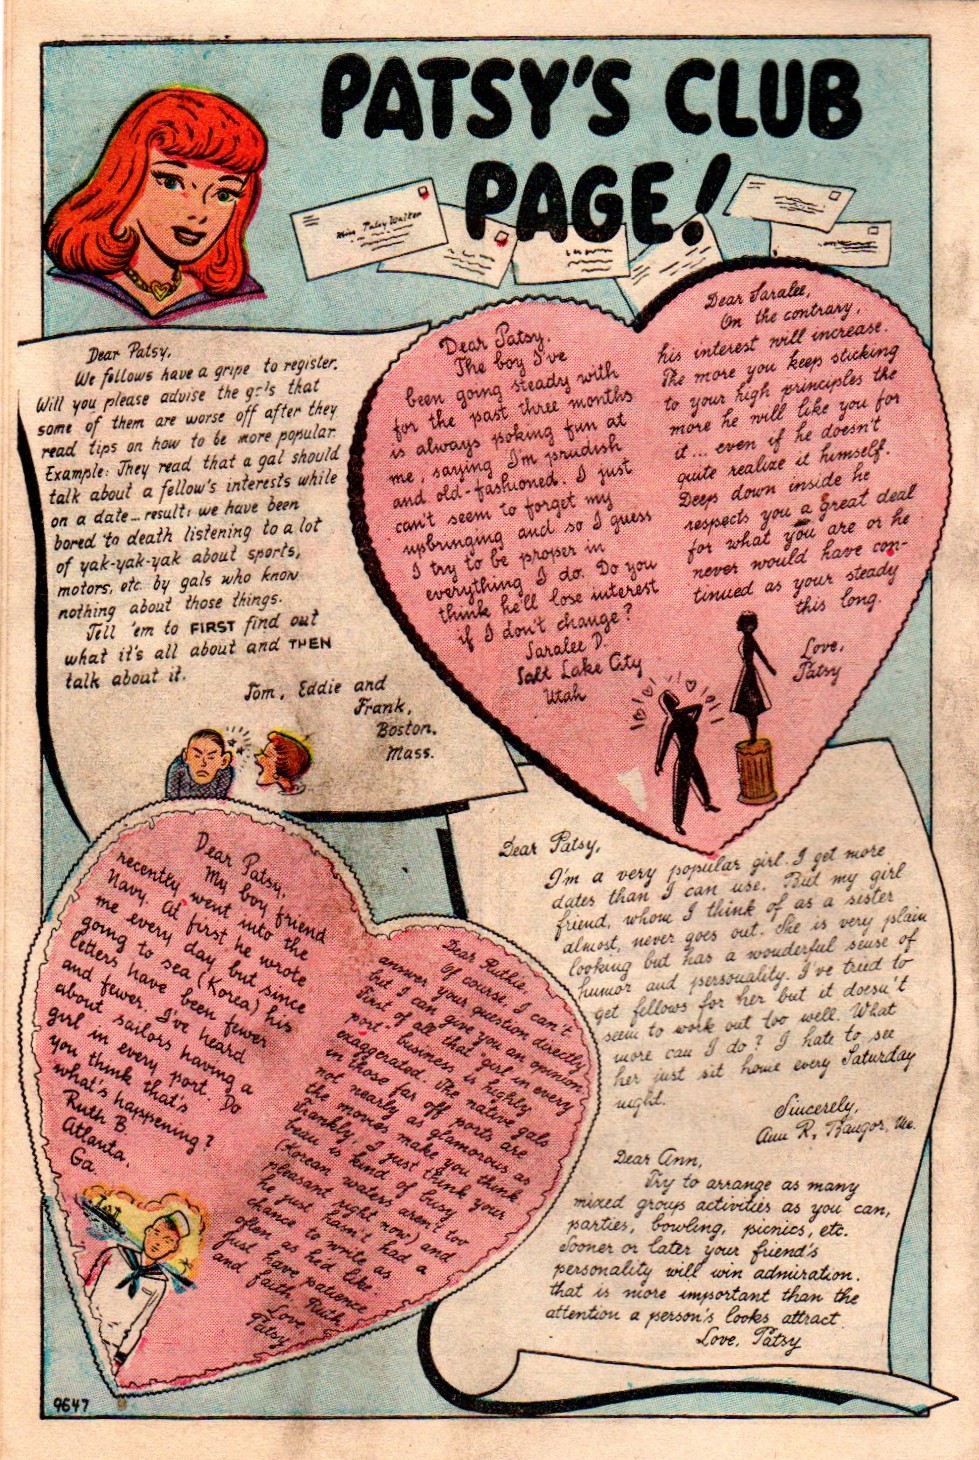 PATSY'S CLUB
PAGE!
Miss Patsy Walker
Dear Patsy,
We fellows have a gripe to register.
Will you please advise the g:ls that
some of them are worse off after they
read tips on how to be more popular.
Example: They read that a gal should
talk about a fellow's interests while
on a date... result: we have been
bored to death listening to a lot
of yak-yak-yak about sports,
motors, etc. by gals who know
nothing about those things.
Tell 'em to FIRST find out
what it's all about and THEN
talk about it.
Tom, Eddie and
Frank,
Boston,
Mass.
Dear Patsy,
The boy I've
been going steady with
for the past three months
is always poking fun at
me, saying I'm prudish
and old-fashioned. I just
can't seem to forget my
upbringing and so I guess
I try to be proper in
everything I do. Do you
think he'll lose interest
if I don't change?
Saralee D.
Salt Lake City
Utah
Dear Saralee,
On the contrary,
his interest will increase.
The more you keep sticking
to your high principles the
more he will like you for
it... even if he doesn't
quite realize it himself.
Deep down inside he
respects you a great deal
for what you are or he
never would have con-
tinued as your steady
this long.
Love,
Patsy
Dear Patsy,
My boy friend
recently went into the
Navy. At first he wrote
me every day but since
going to sea (Korea) his
letters have been fewer
and fewer. I've heard
about sailors having a
girl in every port. Do
you think that's
what's happening?
Ruth B.
Atlanta,
Ga.
Dear Ruthie,
Of course, I can't
answer your question directly
but I can give you an opinion.
First of all that "girl in every
port" business is highly
exaggerated. The native gals
in those far off ports are
not nearly as glamorous as
the movies make you think.
Frankly, I just think your
beau is kind of busy
(Korean waters aren't too
pleasant right now) and
he just hasn't had a
chance to write as
often as he'd like.
Just have patience
and faith, Ruth.
Love,
Patsy
Dear Patsy,
I'm a very popular girl. I get more
dates than I can use. But my girl
friend, whom I think of as a sister
almost, never goes out. She is very plain
looking but has a wonderful sense of
humor and personality. I've tried to
get fellows for her but it doesn't
seem to work out too well. What
more can I do? I hate to see
her just sit home every Saturday
night.
Sincerely,
Ann R, Bangor, Me.
Dear Ann,
Try to arrange as many
mixed group activities as you can,
parties, bowling, picnics, etc.
Sooner or later your friend's
personality will win admiration.
that is more important than the
attention a person's looks attract.
Love, Patsy
9647